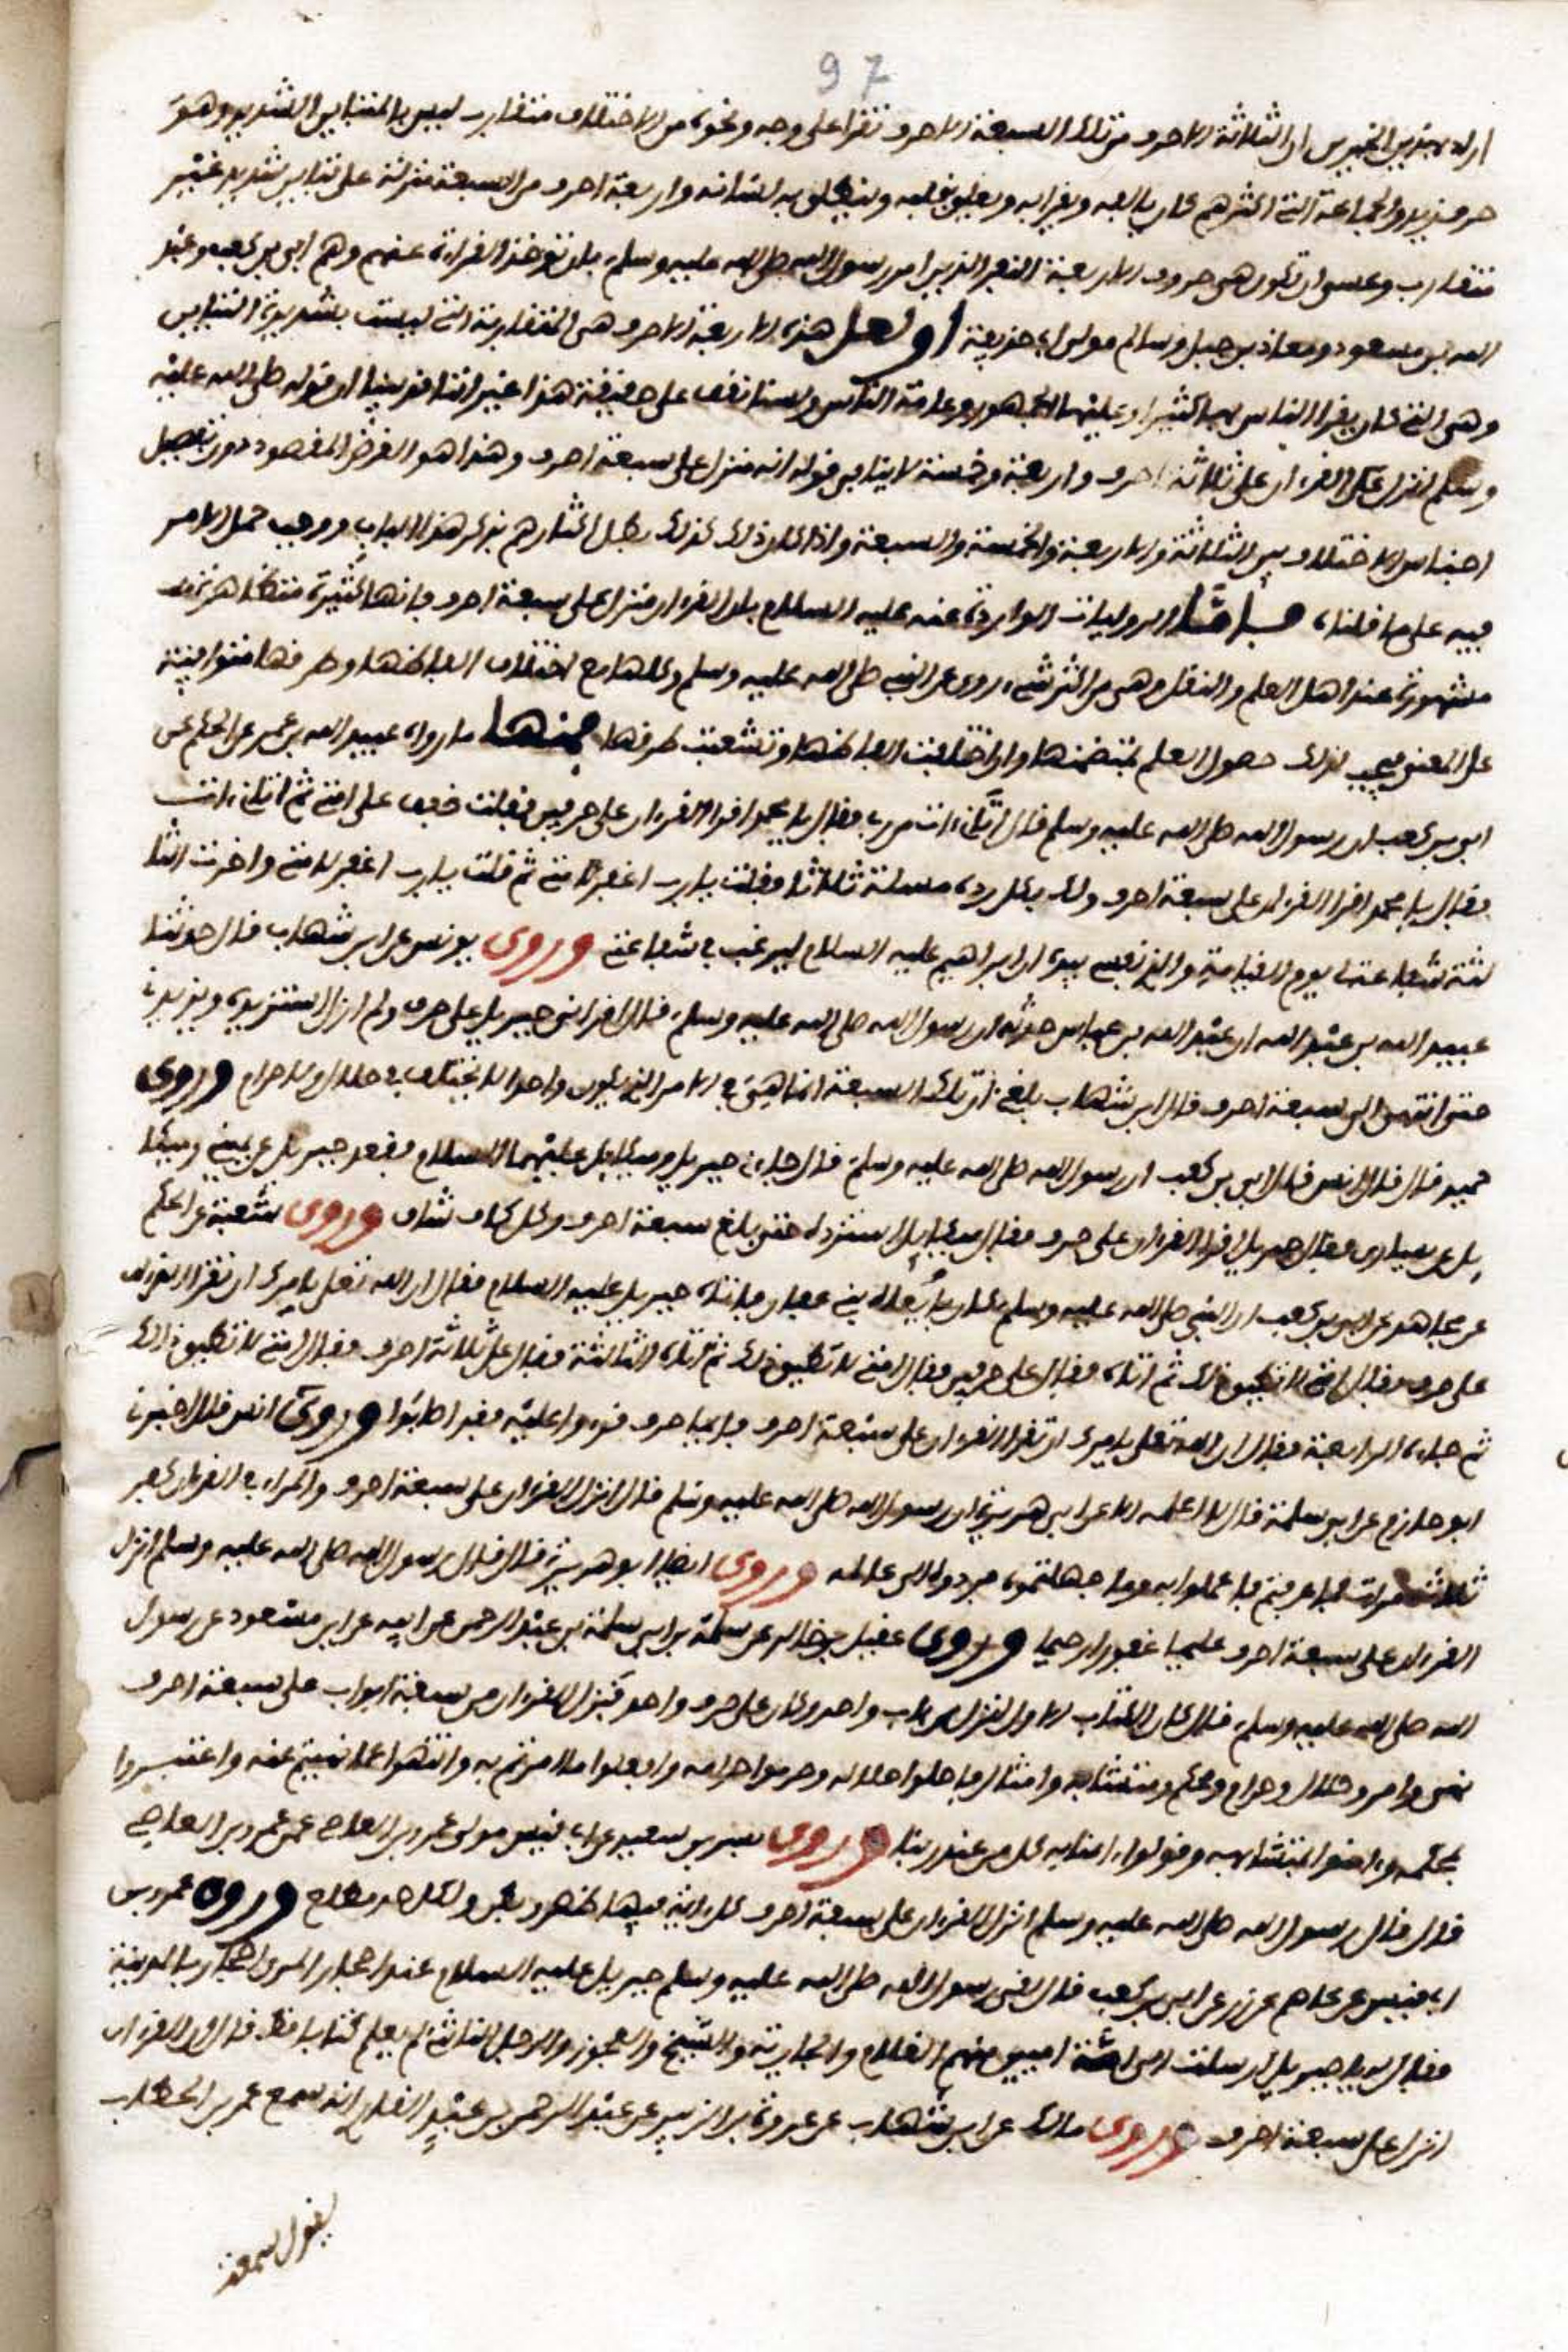 97
اراد بهذين الخبرين ان الثلاثة الاحرف من تلك السبعة الاحرف تقرا على وجه ونحو من الاختلاف متقارب ليس بالمتباين الشديد وهو
حرف زيد والجماعة التي اكثرهم كان يالفه ويقرا به ويعلق بقلبه وينطلق به لسانه واربعة احرف من السبعة منزلة على تباين شديد غير
متقارب وعسى ان تكون هي حروف الاربعة النفر الذين امر رسول الله صلى الله عليه وسلم بان تؤخذ القراءة عنهم وهم ابي بن كعب وعبد
الله بن مسعود ومعاذ بن جبل وسالم مولى ابي حذيفة او لعل هذه الاربعة الاحرف هي المتقاربة التي ليست بشديدة التباين
وهي التي كان يقرا الناس بها كثيرا وعليها الجمهور وعامة الناس ولسنا نقف على حقيقة هذا غير اننا قد بينا ان قوله صلى الله عليه
وسلم انزل علي القرءان على ثلاثة احرف واربعة وخمسة لا ينافي قوله انه منزل على سبعة احرف وهذا هو الغرض المقصود دون تفصيل
اجناس الاختلاف بين الثلاثة والاربعة والخمسة والسبعة واذا كان ذلك كذلك بطل اكثارهم بذكر هذا الباب ووجب حمل الامر
فيه على ما قلناه فاما الروايات الواردة عنه عليه السلام بان القرءان منزل على سبعة احرف فانها كثيرة متظاهرة
مشهورة عند اهل العلم والنقل وهي من اكثر شيء روي عن النبي صلى الله عليه وسلم وكلها مع اختلاف الفاظها وطرقها متوافية
على المعنى فيجب لذلك حصول العلم بمتضمنها وان اختلفت الفاظها وتشعبت طرقها فمنها ما رواه عبيد الله بن عمير عن الحكم عن
ابي بن كعب ان رسول الله صلى الله عليه وسلم قال اتاني ات من ربي فقال يا محمد اقرا القرءان على حرفين فقلت خفف على امتي ثم اتاني ات
فقال يا محمد اقرا القرءان على سبعة احرف ولك بكل ردة مسلة ثلاثا فقلت يا رب اغفر لامتي ثم قلت يا رب اغفر لامتي واخرت الثا
لثة شفاعة لي يوم القيامة والذي نفسي بيده ان ابراهيم عليه السلام ليرغب في شفاعتي وروى يونس عن ابن شهاب قال حدثنا
عبيد الله بن عبد الله ان عبد الله بن عباس حدثه ان رسول الله صلى الله عليه وسلم قال اقراني جبريل على حرف ولم ازل استزيده ويزيدني
حتى انتهى الى سبعة احرف قال ابن شهاب بلغني ان تلك السبعة انما هي في الامر الذي يكون واحدا لا يختلف في حلال ولا حرام وروى
حميد قال قال انس قال ابي بن كعب ان رسول الله صلى الله عليه وسلم قال جاءني جبريل وميكايل عليهما السلام فقعد جبريل عن يميني وميكا
يل عن يساري فقال جبريل اقرا القرءان على حرف فقال ميكايل استزده حتى بلغ سبعة احرف وكل كاف شاف وروى شعبة عن الحكم
عن مجاهد عن ابي بن كعب ان النبي صلى الله عليه وسلم كان باضاة بني غفار فاتاه جبريل عليه السلام فقال ان الله تعلى يامرك ان تقرا القرءان
على حرف فقال امتي لا تطيق ذلك ثم اتاه فقال على حرفين فقال امتي لا تطيق ذلك ثم اتاه الثالثة فقال على ثلاثة احرف فقال امتي لا تطيق ذلك
ثم جاءه الرابعة فقال ان الله تعلى يامرك ان تقرا القرءان على سبعة احرف فايما حرف قرءوا عليه فقد اصابوا وروى انس قال اخبرنا
ابو حازم عن ابي سلمة قال لا اعلمه الا عن ابي هريرة ان رسول الله صلى الله عليه وسلم قال انزل القرءان على سبعة احرف والمراء في القرءان كفر
ثلاث مرات فما عرفتم فاعملوا به وما جهلتموه فردوه الى عالمه وروى ايضا ابو هريرة قال قال رسول الله صلى الله عليه وسلم انزل
القرءان على سبعة احرف عليما غفورا رحيما وروى عقيل بن خالد عن سلمة بن ابي سلمة بن عبد الرحمن عن ابيه عن ابن مسعود عن رسول
الله صلى الله عليه وسلم قال كان الكتاب الاول نزل من باب واحد وكان على حرف واحد فنزل القرءان من سبعة ابواب على سبعة احرف
نهي وامر وحلال وحرام ومحكم ومتشابه وامثال فاحلوا حلاله وحرموا حرامه وافعلوا ما امرتم به وانتهوا عما نهيتم عنه واعتبروا
بمحكمه وءامنوا بمتشابهه وقولوا ءامنا به كل من عند ربنا وروى بسر بن سعيد عن ابي قيس مولى عمرو بن العاصي عن عمرو بن العاصي
قال قال رسول الله صلى الله عليه وسلم انزل القرءان على سبعة احرف كل ءاية منها ظهر وبطن ولكل حد مطلع وروى عمرو بن
ابي قيس عن عاصم عن زر عن ابي بن كعب قال لقي رسول الله صلى الله عليه وسلم جبريل عليه السلام عند احجار المرى احجار بالمدينة
فقال له يا جبريل ارسلت الى امة اميين منهم الغلام والجارية والشيخ والعجوز والرجل القاسي لم يعلم كتابا قط قال ان القرءان
انزل على سبعة احرف وروى مالك عن ابن شهاب عن عروة بن الزبير عن عبد الرحمن بن عبد القاري انه سمع عمر بن الخطاب
يقول سمعت